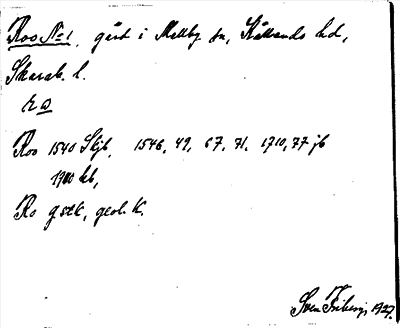 Roo No 1, gård i Mellby sn, Kållands hd,
Skarab. l.
ra
Roo 1540 Skjb, 1546, 49, 67, 71, 1710, 77 jb
1900 kb,
Ro gstk, geol. K.
Sven Friberg, 1927.